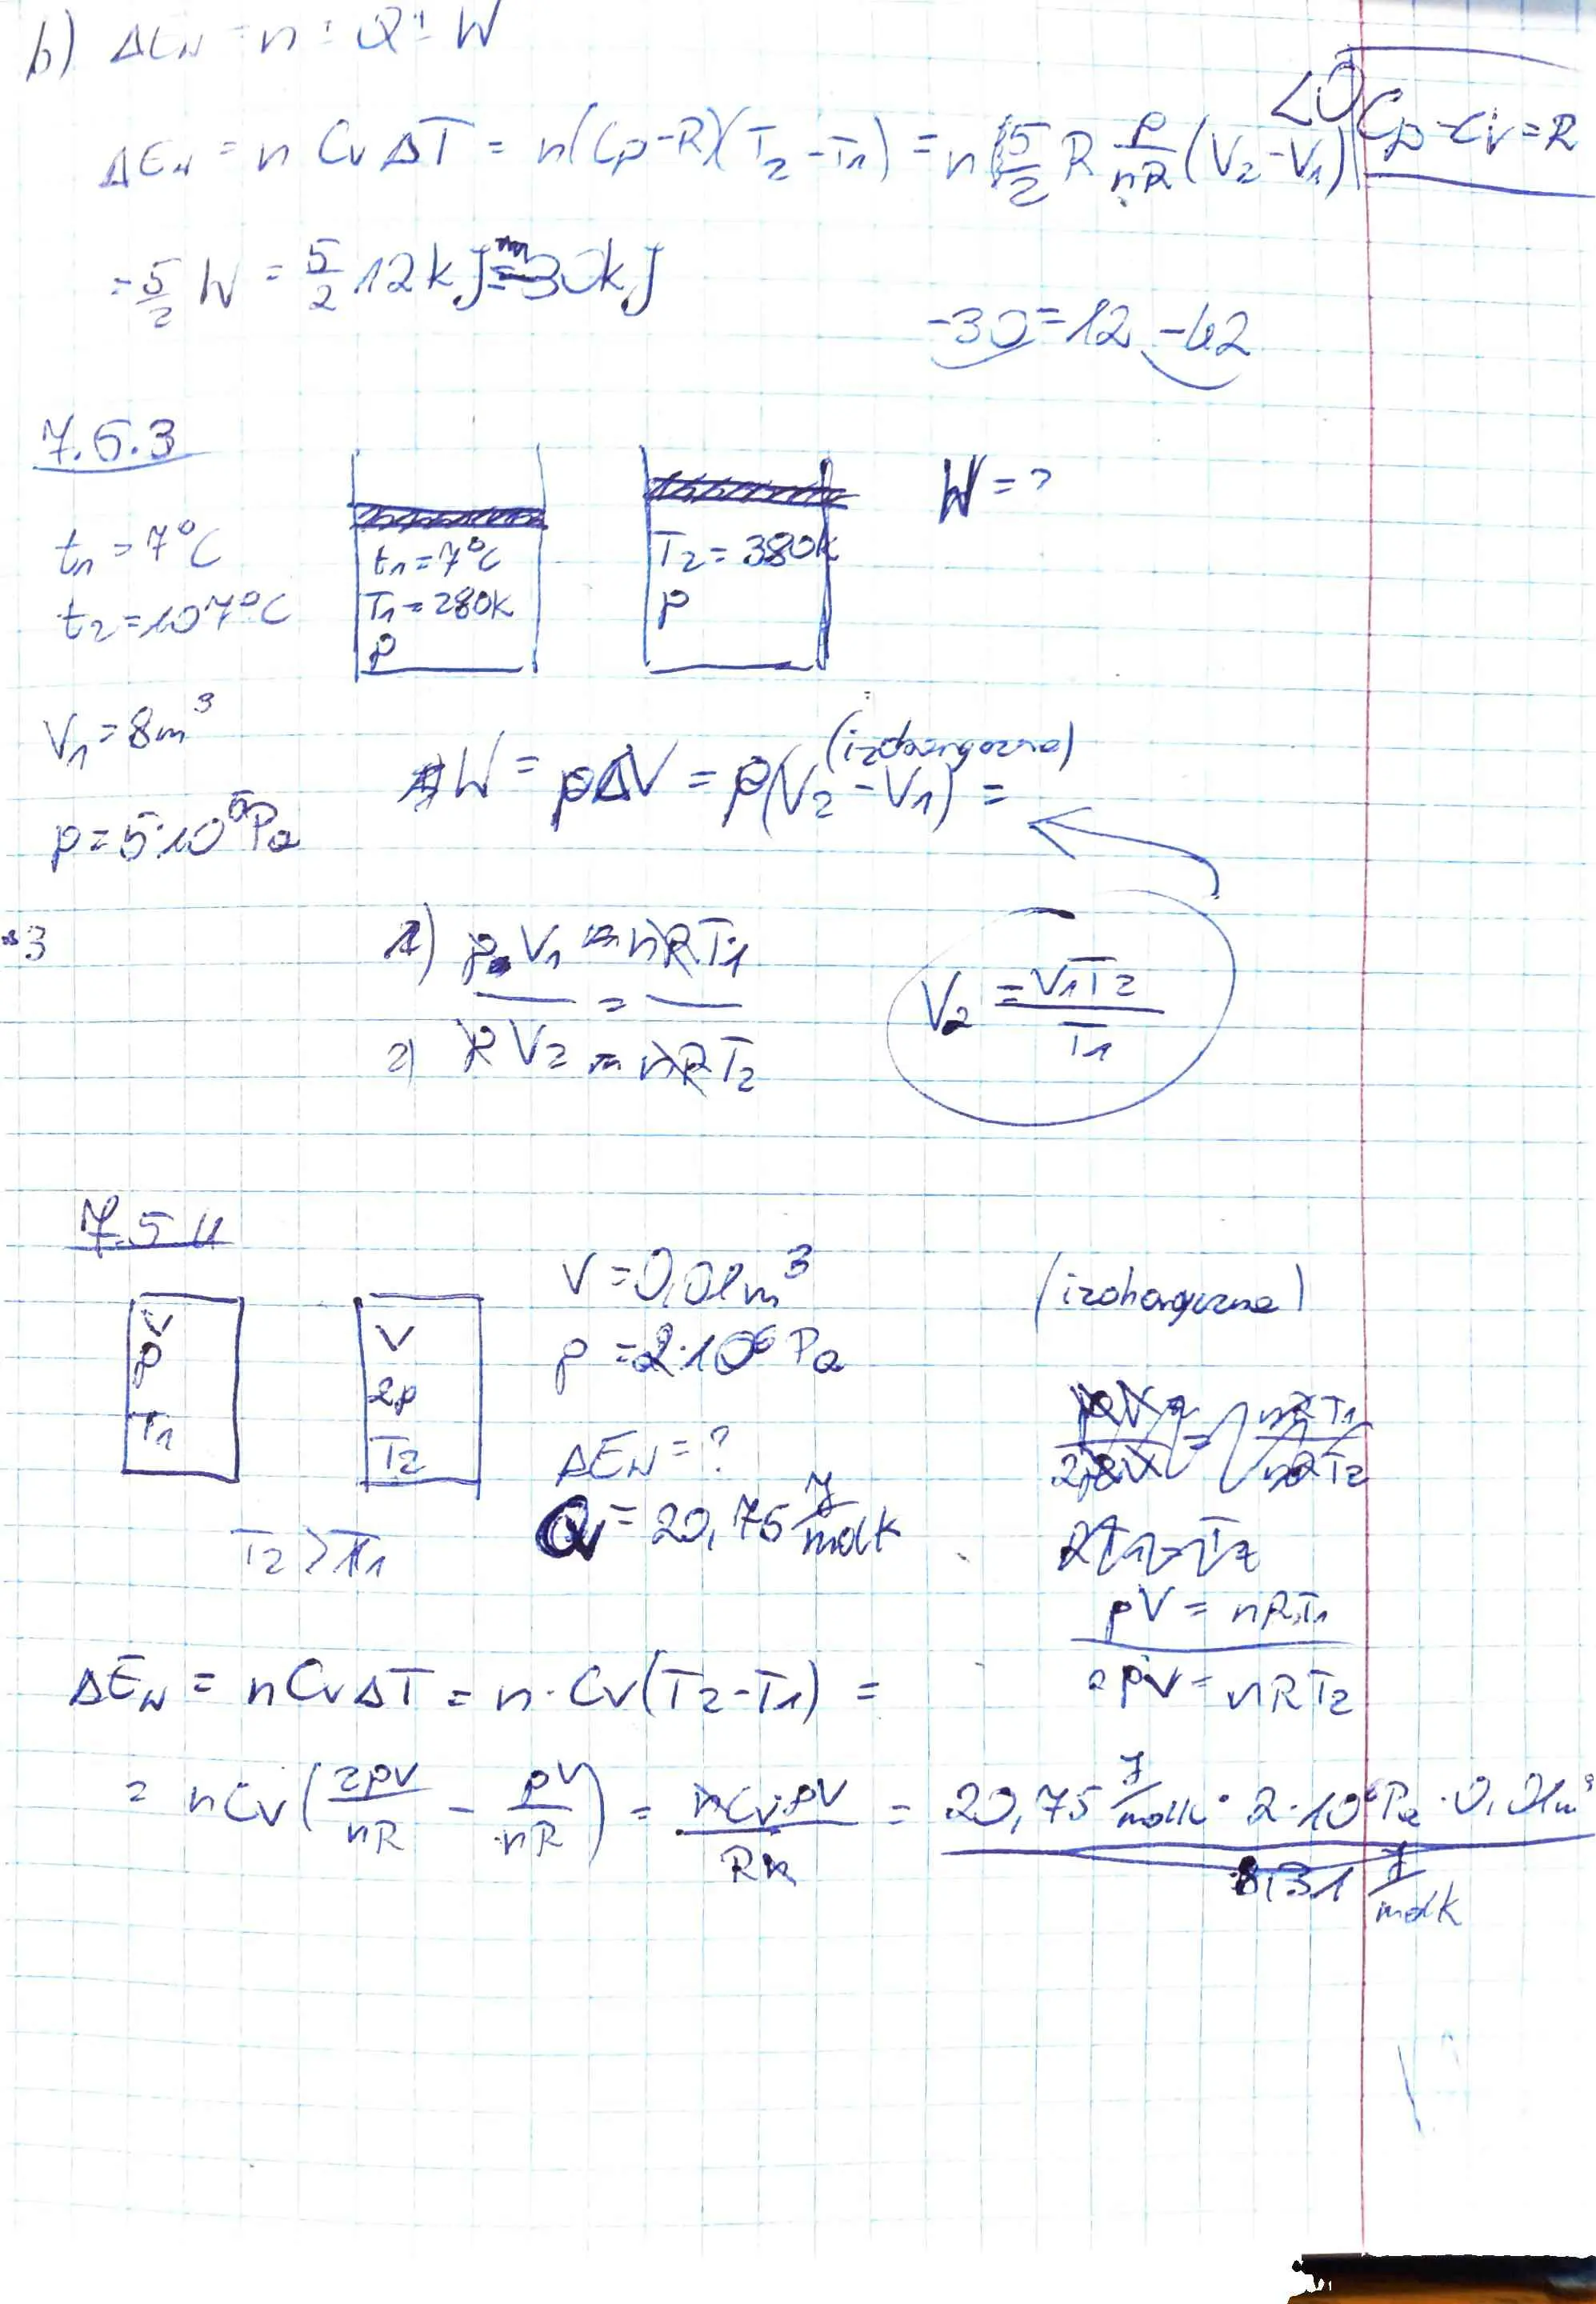 b) ΔEN = n ± Q ± W
ΔEN = n Cv ΔT = n(Cp-R)(T2-T1) = n 5/2 R p/nR (V2-V1) <0 Cp-Cv=R
= 5/2 W = 5/2 12kJ = -30kJ
-30 = 12 -42
7.5.3
W = ?
t1 = 7°C
t2 = 107°C
t1 = 7°C
T1 = 280K
p
T2 = 380K
p
V1 = 8m³
p = 5·10⁵Pa
(izobaryczna)
W = pΔV = p(V2-V1) =
3
1) p V1 = nRT1
2) p V2 = nRT2
V2 = V1T2/T1
7.5.4
V p T1
V 2p T2
T2 > T1
V = 0,01m³
p = 2·10⁶ Pa
ΔEN = ?
Cv = 20,75 J/molK
pV = nRT1
2pV = nRT2
ΔEN = nCvΔT = n·Cv(T2-T1) =
= nCv(2pV/nR - pV/nR) = nCv·pV/Rn = 20,75 J/molK · 2·10⁶Pa · 0,01m³ / 8,31 J/molK